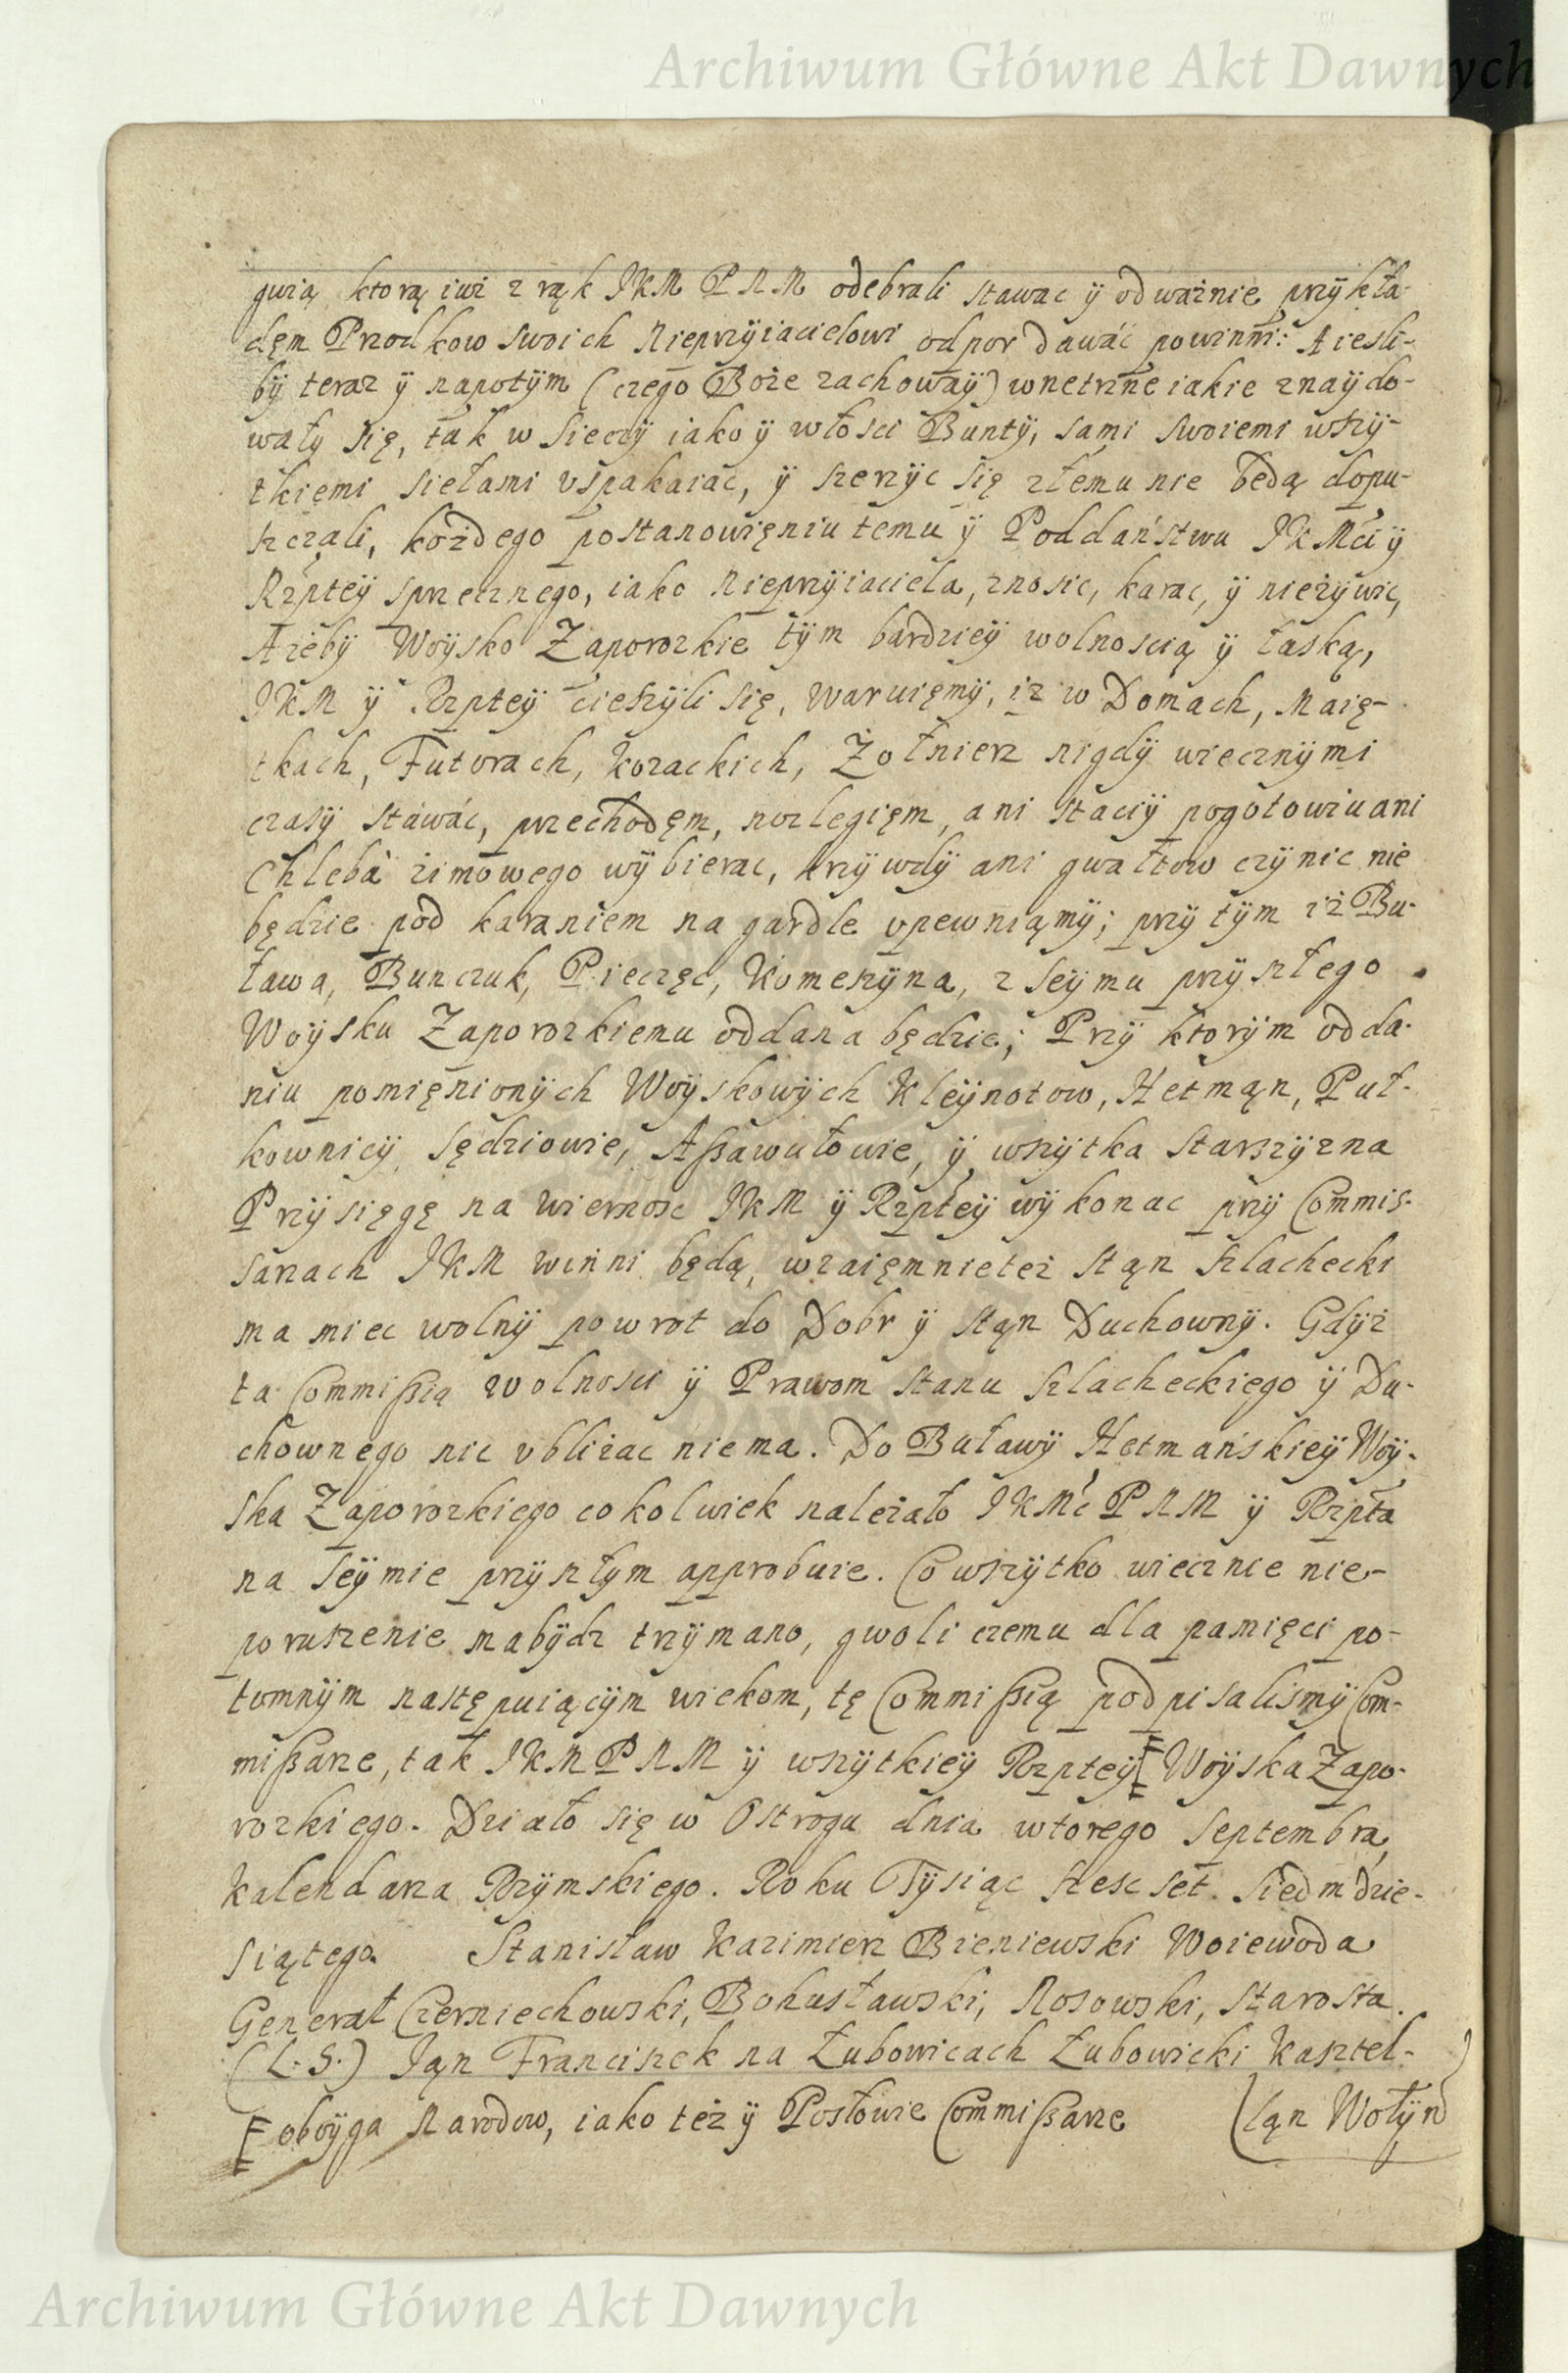 Archiwum Główne Akt Dawnych
gwią ktorą iuż z rąk JKM PNM odebrali stawac ÿ odważnie przÿkła-
dęm Przodkow swoich Nieprzÿiacielowi odpor dawáć powinni: A iesli-
bÿ teraz ÿ napotÿm (czego Boże zachowaÿ) wnetrzne iakie znaÿdo-
wałÿ się, tak w Sieczÿ iako ÿ włosci Buntÿ, sami swoiemi wszÿ-
tkiemi siełami vspakaiac, ÿ szerzÿc się złemu nie będą dopu-
szczali, kożdego postanowięniu temu ÿ Poddaństwu JKMci ÿ
Rzpteÿ sprzecznego, iako Nieprzÿiaciela, znosic, karac, ÿ nieżÿwic,
Ażebÿ Woÿsko Zaporozkie tÿm bardzieÿ wolnoscią ÿ łaską,
JKM ÿ Rzpteÿ cieszÿli się, waruięmÿ, iz w Domach, Maię-
tkach, Futorach, Kozackich, Żołnierz nigdÿ wiecznÿmi
czasÿ stawáć, przechodęm, nozlegięm, ani staciÿ pogotowiu ani
Chleba zimowego wÿbierac, krzÿwdÿ ani gwałtow czÿnic nie
będzie pod karaniem na gardle vpewniąmÿ; przÿ tÿm iż Bu-
ława, Bunczuk, Pieczęc, Komeszÿna, z Seÿmu przÿszłego
Woÿsku Zaporozkiemu oddana będzie; Przÿ ktorÿm odda-
niu pomięnionÿch Woÿskowÿch Kleÿnotow, Hetmąn, Puł-
kownicÿ, Sędziowie, Aßawułowie, ÿ wszÿtka starszÿzna
Przÿsięgę na wiernosc JKM ÿ Rzpteÿ wÿkonac przÿ Commis-
sarzach JKM winni będą, wzaięmnie też stąn szlachecki
ma miec wolnÿ powrot do Dobr ÿ stąn Duchownÿ. Gdÿż
ta Commißią wolnosci ÿ Prawom stanu szlacheckiego ÿ Du-
chownego nic vbliżac niema. Do Buławÿ Hetmańskieÿ Woÿ-
ska Zaporozkiego cokolwiek należało JKMć PNM ÿ Rzpta
na Seÿmie przÿszłym approbuie. Co wszÿtko wiecznie nie-
poruszenie mabÿdz trzÿmano, gwoli czemu dla pamięci po-
tomnÿm nastę puiącÿm wiekom, tę Commißią podpisalismÿ Com-
mißarze, tak JKM PNM ÿ wszÿtkieÿ Rzpteÿ [ Woÿska Zapo-
rozkiego. Działo się w Ostrogu dnia wtorego Septembra,
Kalendarza Rzÿmskiego. Roku Tÿsiąc szesc set Siedmdzie-
siątego. Stanisław Kazimierz Bieniewski Woiewoda
Generał Czerniechowski, Bohusławski, Nosowski, Starosta.
(L. S.) Jąn Franciszek na Łubowicach Łubowicki Kasztel-
(ląn Wołÿn
[ oboÿga Narodow, iako też ÿ Posłowie Commißarze
Archiwum Główne Akt Dawnych